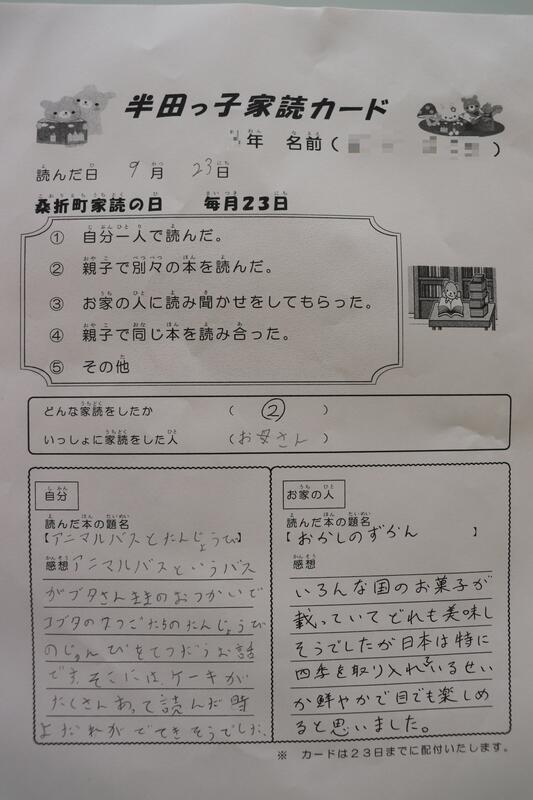 半田っ子家読カード
年 名前（ ）
読んだ日 9月 23日
桑折町家読の日 毎月23日
① 自分一人で読んだ。
② 親子で別々の本を読んだ。
③ お家の人に読み聞かせをしてもらった。
④ 親子で同じ本を読み合った。
⑤ その他
どんな家読をしたか （ ② ）
いっしょに家読をした人 （お母さん）
自分
読んだ本の題名
【アニマルバスとたんじょうび】
感想 アニマルバスというバス
がブタさん のおつかいで
コブタの つごたちのたんじょうび
のじゅんびをてつだうお話
です。そこには、ケーキが
たくさんあって読んだ時
よだれがでてきそうでした。
お家の人
読んだ本の題名
【おかしのずかん】
感想
いろんな国のお菓子が
載っていてどれも美味し
そうでしたが日本は特に
四季を取り入れているせい
か鮮やかで目でも楽しめ
ると思いました。
※ カードは23日までに配付いたします。